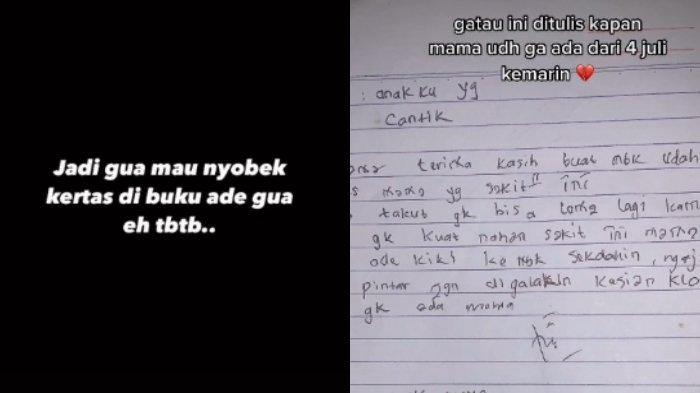 Jadi gua mau nyobek
kertas di buku ade gua
eh tbtb..
gatau ini ditulis kapan
mama udh ga ada dari 4 juli
kemarin 💔
: anakku yg
Cantik
terima kasih buat mbk udah
mama yg sakit" ini
takut gk bisa lama lagi karn
gk kuat nahan sakit ini mama
ade kiki ke mbk sekolahin, ngaj
pintar jgn di galakin kasian klo
gk ada mama